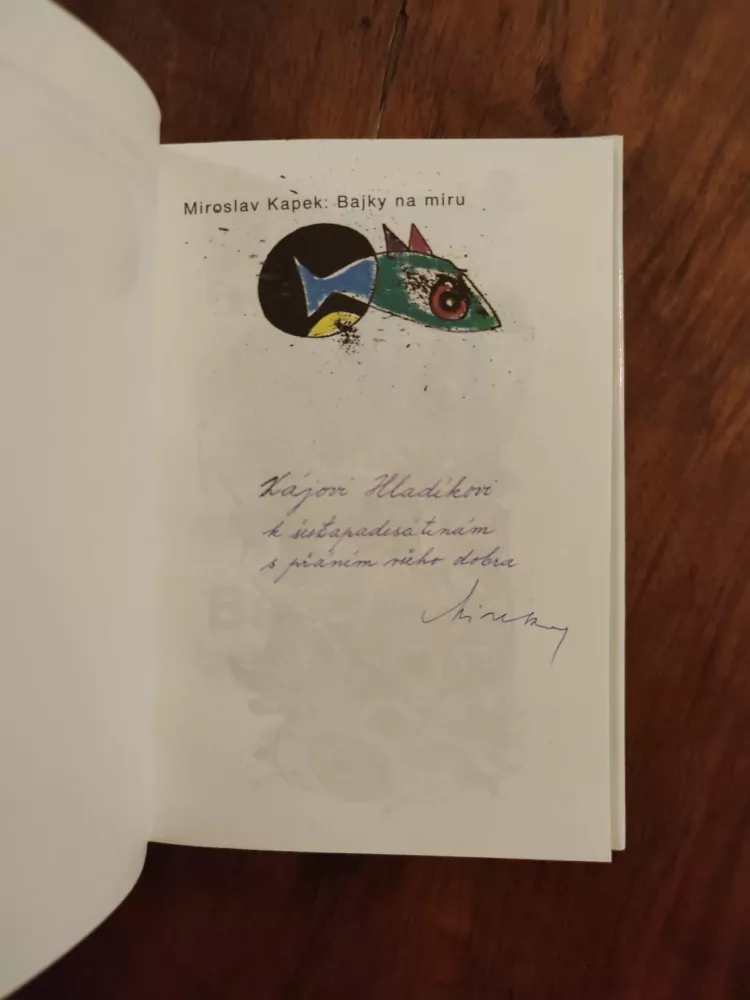 Miroslav Kapek: Bajky na míru
Kájovi Hladíkovi
k šestapadesátinám
s přáním všeho dobra
Mirek